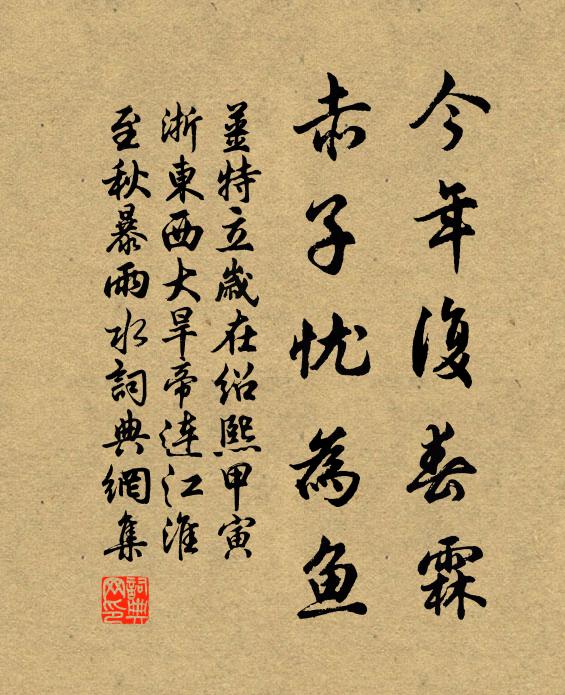 今年復春霖
赤子忧為鱼
薑特立歲在紹熙甲寅
浙東西大旱帝連江淮
至秋暴雨水詞典網集
詞典
网印